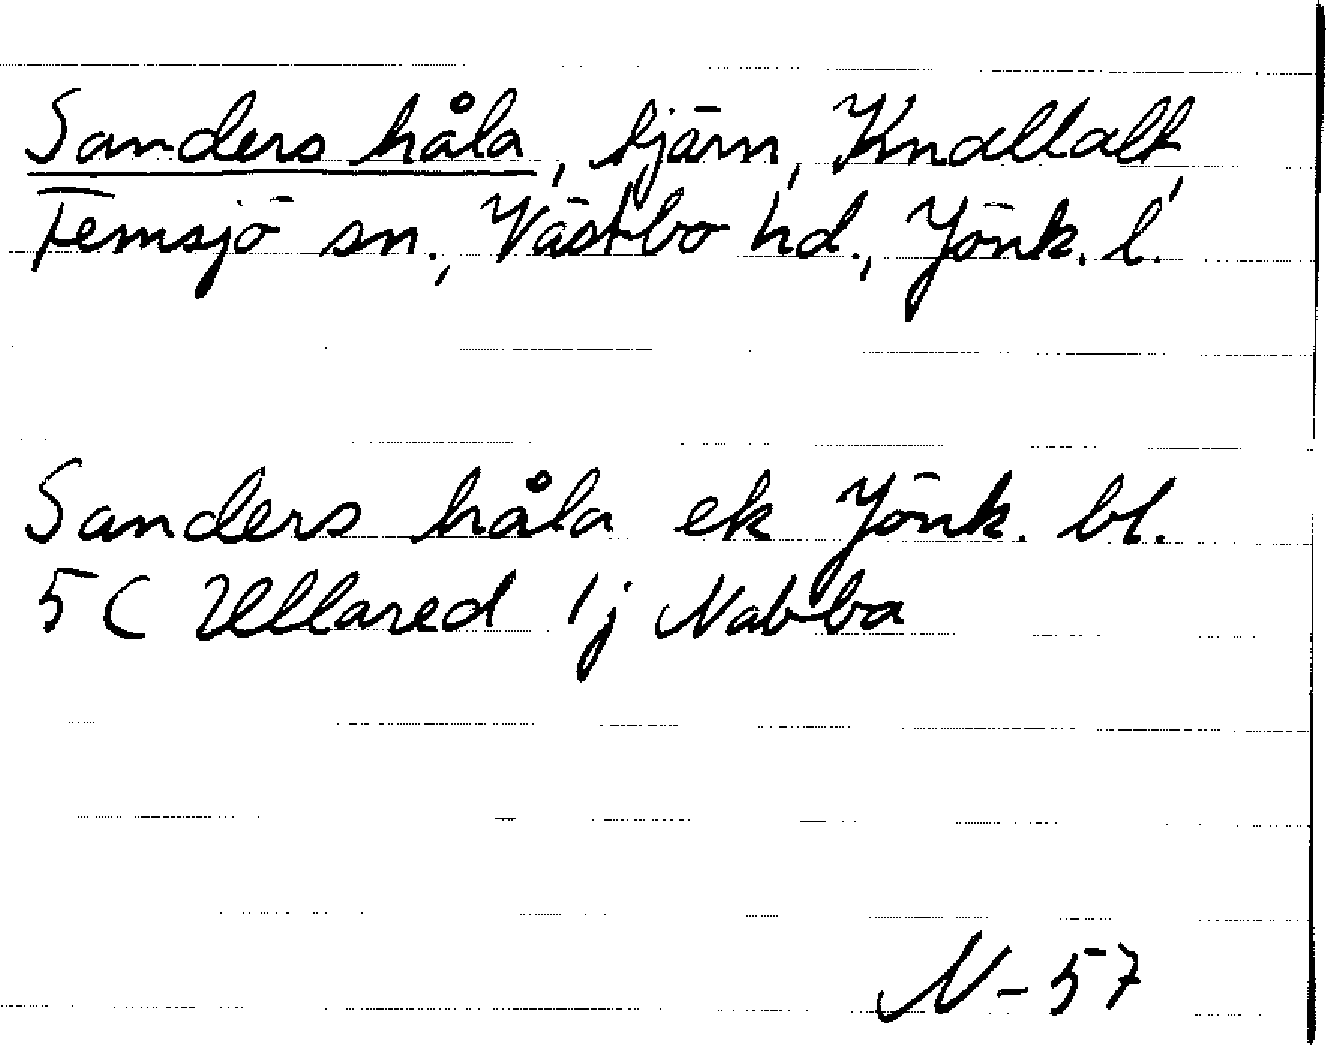 Sanders håla, tjärn, Knallalt,
Femsjö sn., Västbo hd., Jönk. l.
Sanders håla ek Jönk. bl.
5C Ullared 1j Nabba
N-57